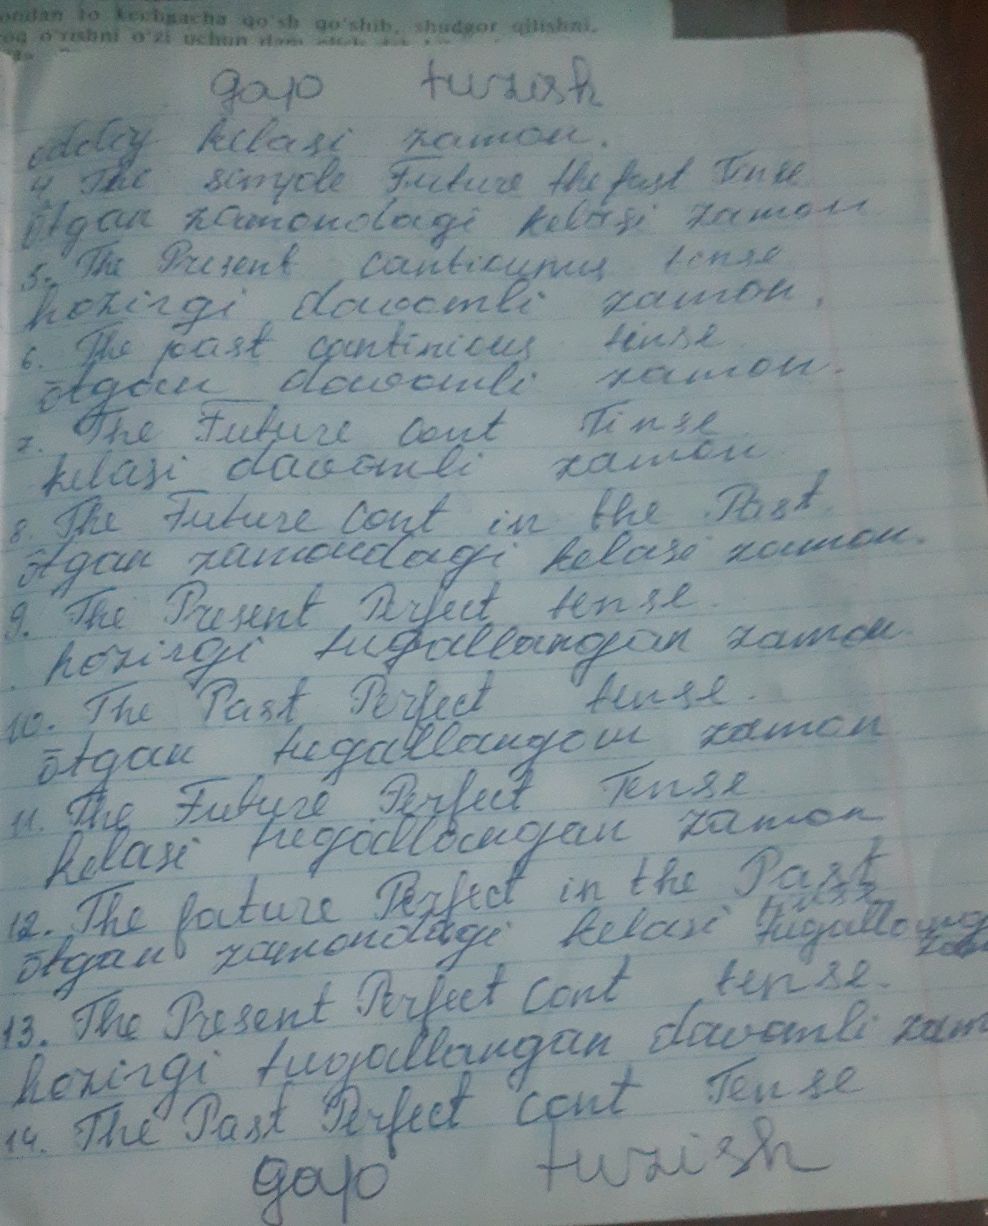 ondan to kechgacha qo'sh qo'shib, shudgor qilishni,
o'rishni o'zi uchun dam
gap tuzish
oddiy kelasi zamon.
4. The simple Future the past Tense
ōtgan zamondagi kelasi zamon
5. The Present canticunus tense
hozirgi davomli zamon.
6. The past continious tense
ōtgan davomli zamon.
7. The Future cont Tinse
kelasi davomli zamon
8. The Future cont in the Past
ōtgan zamondagi kelasi zamon.
9. The Present Perfect tense.
hozirgi tugallangan zamon.
10. The Past Perfect tense.
ōtgan tugallangan zamon
11. The Future Perfect Tense.
kelasi tugallangan zamon
12. The future Perfect in the Past
ōtgan zamondagi kelasi tugallang
13. The Present Perfect cont tense.
hozirgi tugallangan davomli zam
14. The Past Perfect cont Tense
gap tuzish